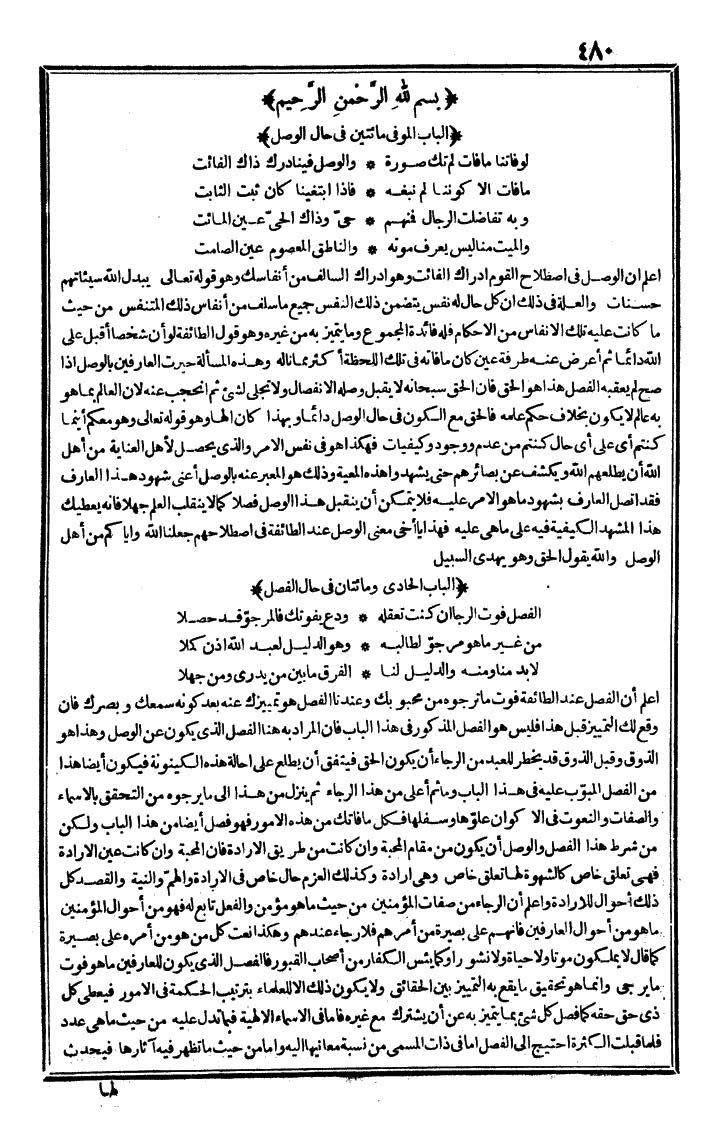 ٤٨٠
﴿بسم لله الرَّحْمنِ الرَّحِيم﴾
﴿الباب الموفى مائتين فى حال الوصل﴾
لو فاتنا مافات لم تك صورة * والوصل فينا درك ذاك الفائت
مافات الا كوننا لم نبغه * فاذا ابتغينا كان ثبت الثابت
وبه تفاضلت الرجال فمنهم * حىّ وذاك الحىّ عين المائت
والميت منا ليس يعرف موته * والناطق المعصوم عين الصامت
اعلم ان الوصل فى اصطلاح القوم ادراك الفائت وهو ادراك السالف من أنفاسك وهو قوله تعالى يبدل الله سيئاتهم
حسنات والعلة فى ذلك ان كل حال له نفس يتضمن ذلك النفس جميع ماسلف من أنفاس ذلك المتنفس من حيث
ما كانت عليه تلك الانفاس من الاحكام فله فائدة المجموع وما يتميز به من غيره وهو قول الطائفة لو أن شخصا أقبل على
الله دائما ثم أعرض عنه طرفة عين كان مافاته فى تلك اللحظة أكثر مماناله وهذه المسألة حيرت العارفين بالوصل اذا
صح لم يعقبه الفصل هذا هو الحق فان الحق سبحانه لا يقبل وصله الانفصال ولا تجلى لشئ ثم انحجب عنه لان العالم بما هو
به عالم لا يكون بخلاف حكم علمه فالحق مع الكون فى حال الوصل دائما وبهذا كان الها وهو قوله تعالى وهو معكم أينما
كنتم أى على أى حال كنتم من عدم ووجود وكيفيات فهكذا هو فى نفس الامر والذى يحصل لأهل العناية من أهل
الله أن يطلعهم الله ويكشف عن بصائرهم حتى يشهدوا هذه المعية وذلك هو المعبر عنه بالوصل أعنى شهود هذا العارف
فقد اتصل العارف بشهود ماهو الامر عليه فلا يتمكن أن ينقبل هذا الوصل فصلا كما لا ينقلب العلم جهلا فانه يعطيك
هذا المشهد الكيفية فيه على ماهى عليه فهذا يا أخى معنى الوصل عند الطائفة فى اصطلاحهم جعلنا الله واياكم من أهل
الوصل والله يقول الحق وهو يهدى السبيل
﴿الباب الحادى ومائتان فى حال الفصل﴾
الفصل فوت الرجا ان كنت تعقله * ودع يفوتك فالمرجوّ قد حصلا
من غير ماهو مرجوّ لطالبه * وهو الدليل لعبد الله اذ كملا
لابد منا ومنه والدليل لنا * الفرق مابين من يدرى ومن جهلا
اعلم أن الفصل عند الطائفة فوت ماترجوه من محبوبك وعندنا الفصل هو تمييزك عنه بعد كونه سمعك وبصرك فان
وقع لك التمييز قبل هذا فليس هو الفصل المذكور فى هذا الباب فان المراد به هنا الفصل الذى يكون عن الوصل وهذا هو
الذوق وقبل الذوق قد يخطر للعبد من الرجاء أن يكون الحق فيتفق أن يطلع على احالة هذه الكينونة فيكون أيضا هذا
من الفصل المبوّب عليه فى هذا الباب وماثم أعلى من هذا الرجاء ثم ينزل من هذا الى مايرجوه من التحقق بالاسماء
والصفات والنعوت فى الاكوان علوّها وسفلها فكل مافاتك من هذه الامور فهو فصل أيضا من هذا الباب ولكن
من شرط هذا الفصل والوصل أن يكون من مقام المحبة وان كانت من طريق الارادة فان المحبة وان كانت عين الارادة
فهى تعلق خاص كالشهوة لها تعلق خاص وهى ارادة وكذلك العزم حال خاص فى الارادة والهمّ والنية والقصد كل
ذلك أحوال للارادة واعلم أن الرجاء من صفات المؤمنين من حيث ماهو مؤمن والفعل تابع له فهو من أحوال المؤمنين
ماهو من أحوال العارفين فانهم على بصيرة من أمرهم فلا رجاء عندهم وهكذا نعت كل من هو من أمره على بصيرة
كما قال لا يملكون موتا ولا حياة ولا نشورا وكما يئس الكفار من أصحاب القبور فالفصل الذى يكون للعارفين ماهو فوت
مايرجى وانما هو تحقيق مايقع به التمييز بين الحقائق ولا يكون ذلك الا للعلماء بترتيب الحكمة فى الامور فيعطى كل
ذى حق حقه كما فصل كل شئ بما يتميز به عن أن يشترك مع غيره فاما فى الاسماء الالهية فيما تدل عليه من حيث ماهى عدد
فلما قبلت الكثرة احتيج الى الفصل اما فى ذات المسمى من نسبة معانيها اليه واما من حيث ماتظهر فيه آثارها فيحدث
لها